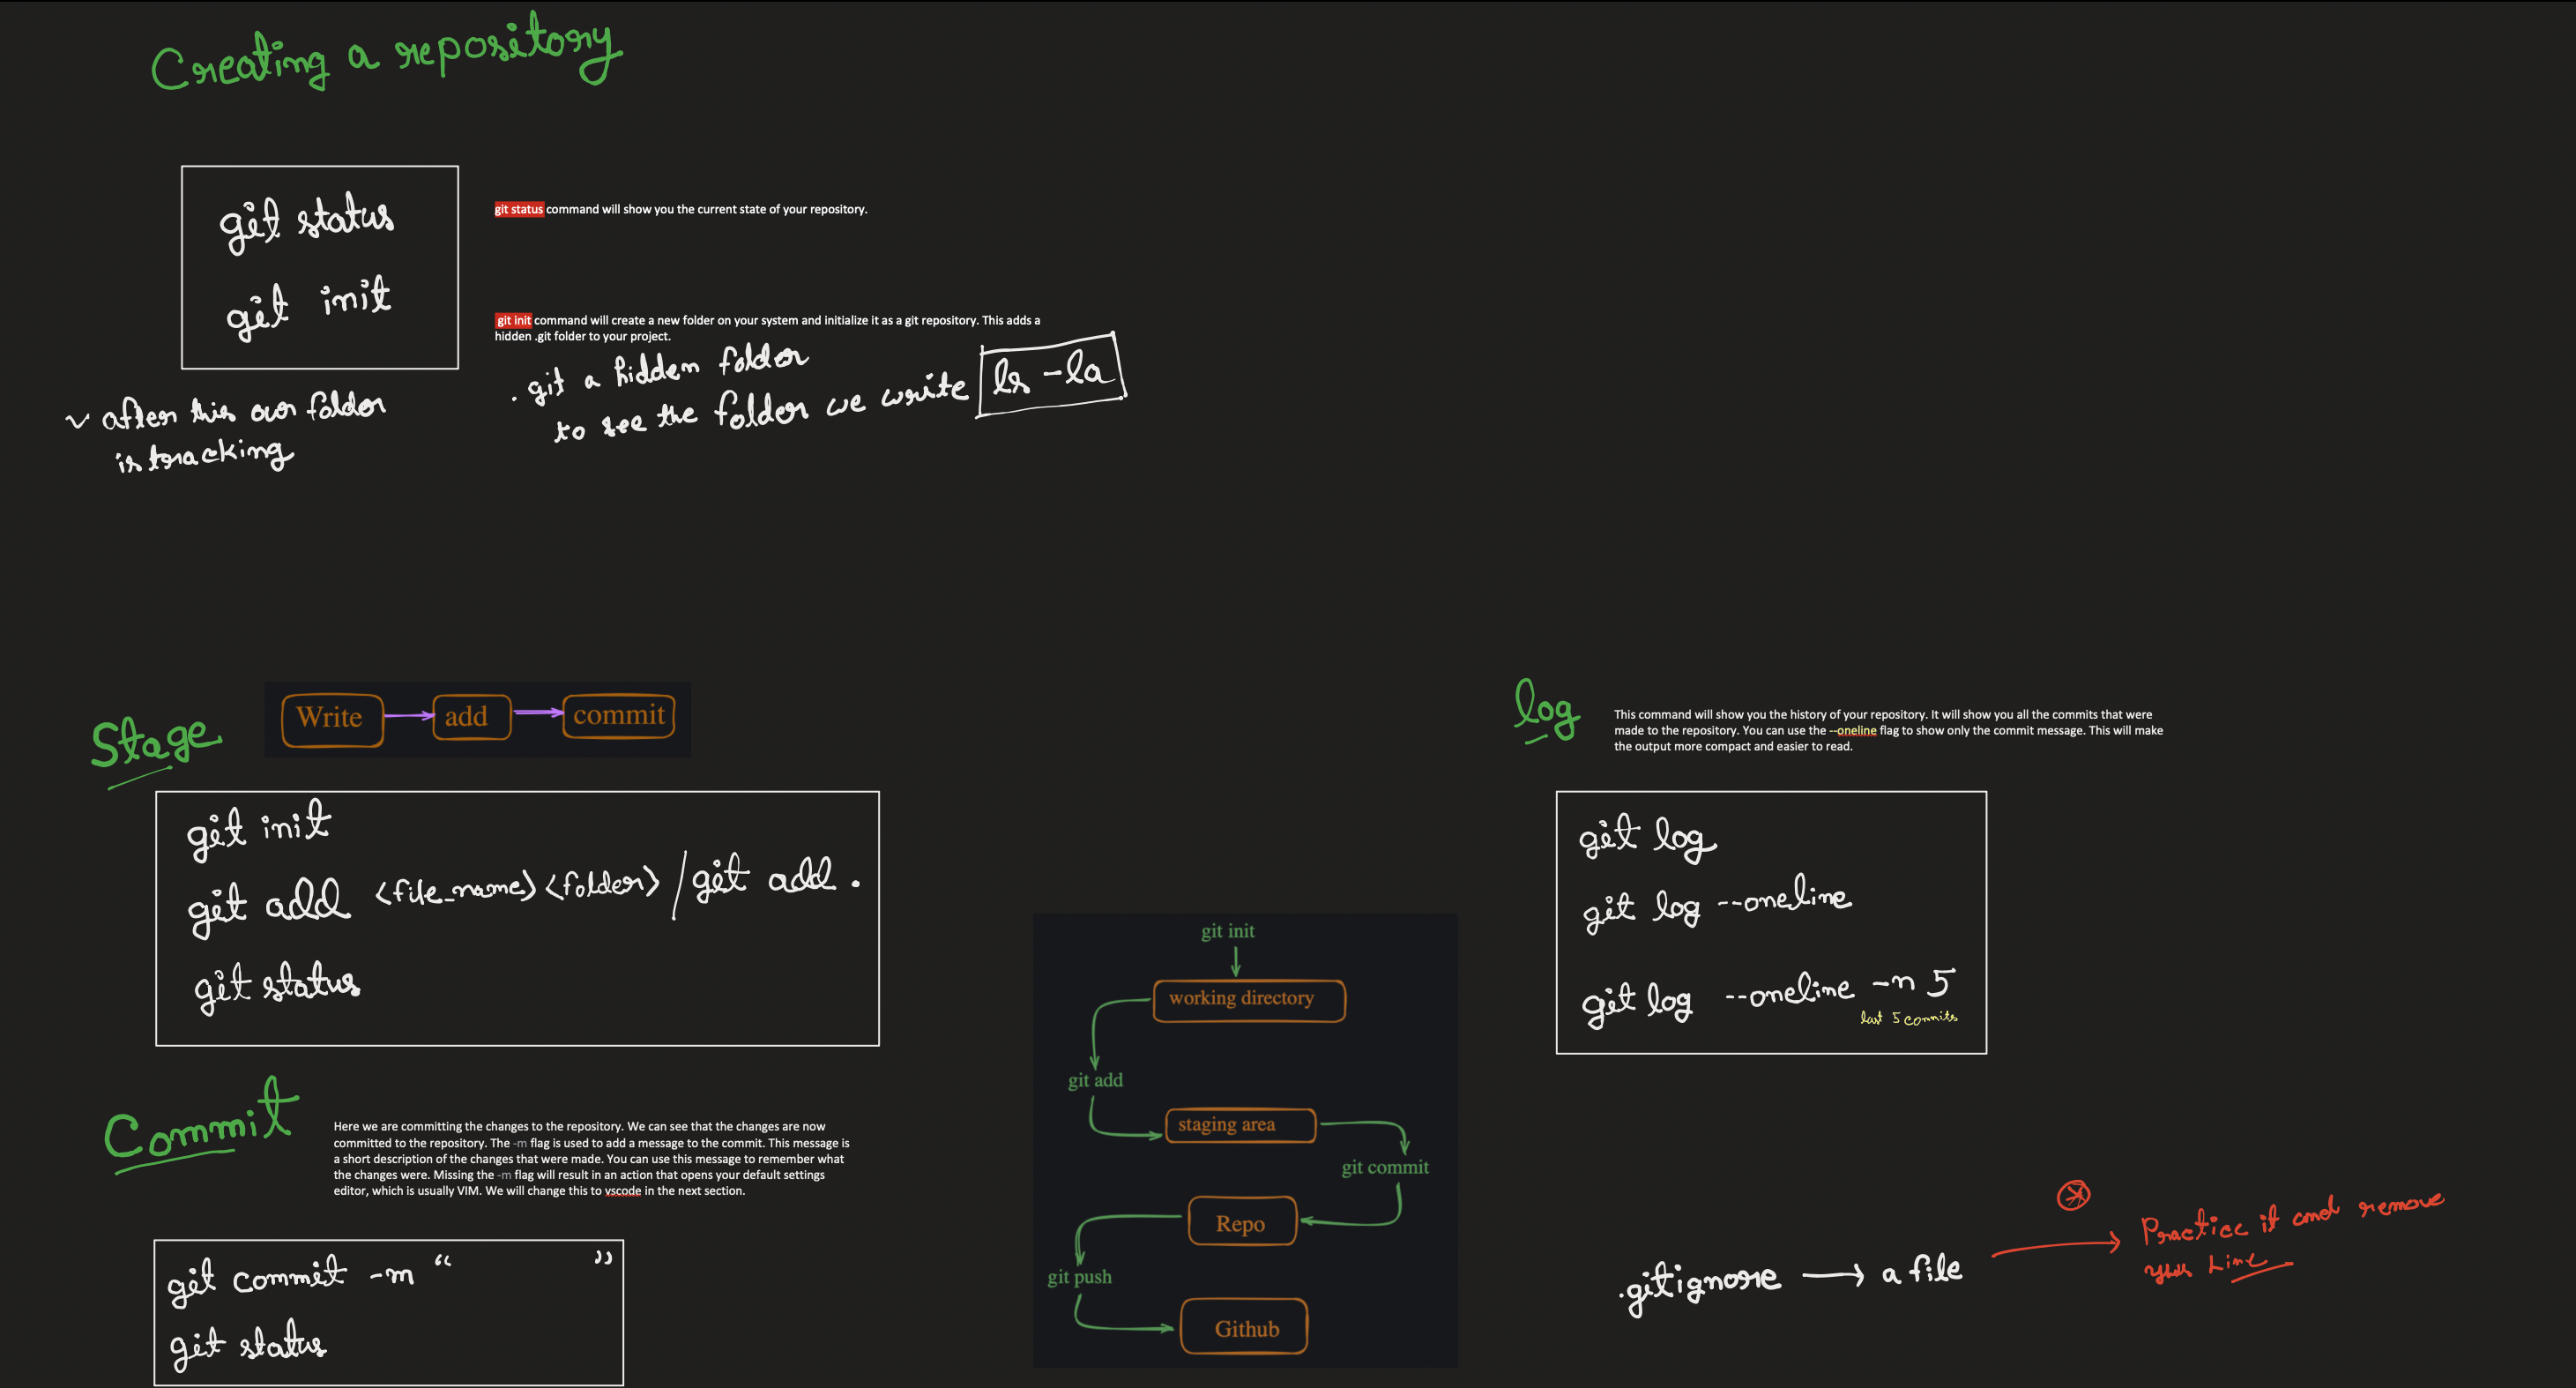 Creating a repository
git status
git status command will show you the current state of your repository.
git init
git init command will create a new folder on your system and initialize it as a git repository. This adds a
hidden .git folder to your project.
.git a hidden folder
to see the folder we write ls -la
after this our folder
is tracking
Stage
Write add commit
git init
git add <file_name> <folder> / git add .
git status
Commit
Here we are committing the changes to the repository. We can see that the changes are now
committed to the repository. The -m flag is used to add a message to the commit. This message is
a short description of the changes that were made. You can use this message to remember what
the changes were. Missing the -m flag will result in an action that opens your default settings
editor, which is usually VIM. We will change this to vscode in the next section.
git commit -m “ ”
git status
git init
working directory
git add
staging area
git commit
Repo
git push
Github
log
This command will show you the history of your repository. It will show you all the commits that were
made to the repository. You can use the --oneline flag to show only the commit message. This will make
the output more compact and easier to read.
git log
git log --oneline
git log --oneline -n 5
last 5 commits
.gitignore → a file
Practice it and remove
Line